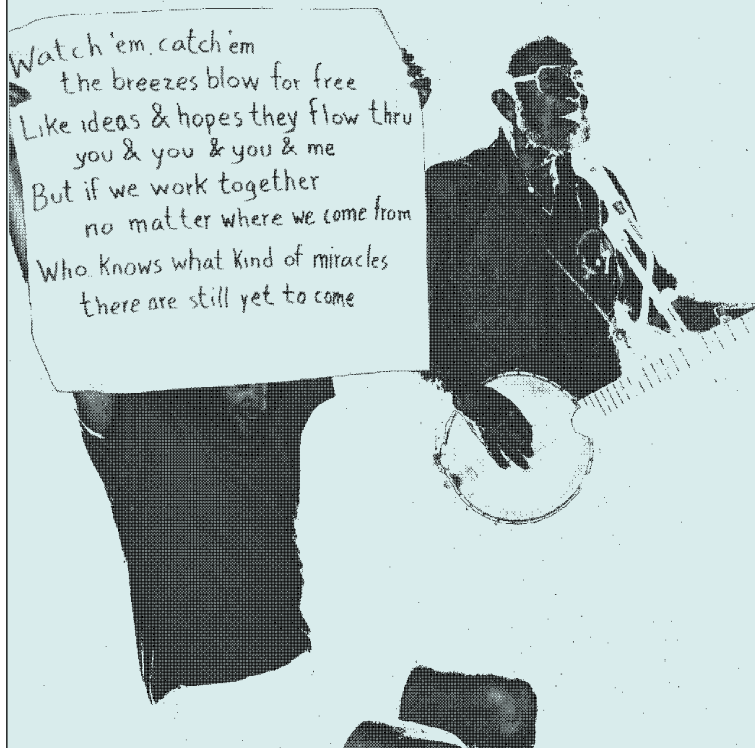 Watch 'em, catch 'em
the breezes blow for free
Like ideas & hopes they flow thru
you & you & you & me
But if we work together
no matter where we come from
Who knows what kind of miracles
there are still yet to come